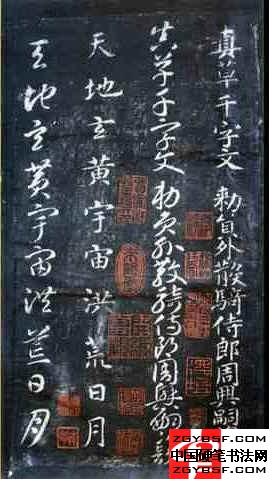 真草千字文 勅員外散騎侍郎周興嗣
真草千字文 勅員外散騎侍郎周興嗣
天地玄黃宇宙洪荒日月
天地玄黃宇宙洪荒日月
ZGYBSF.COM
中国硬笔书法网
ZGYBSF.COM